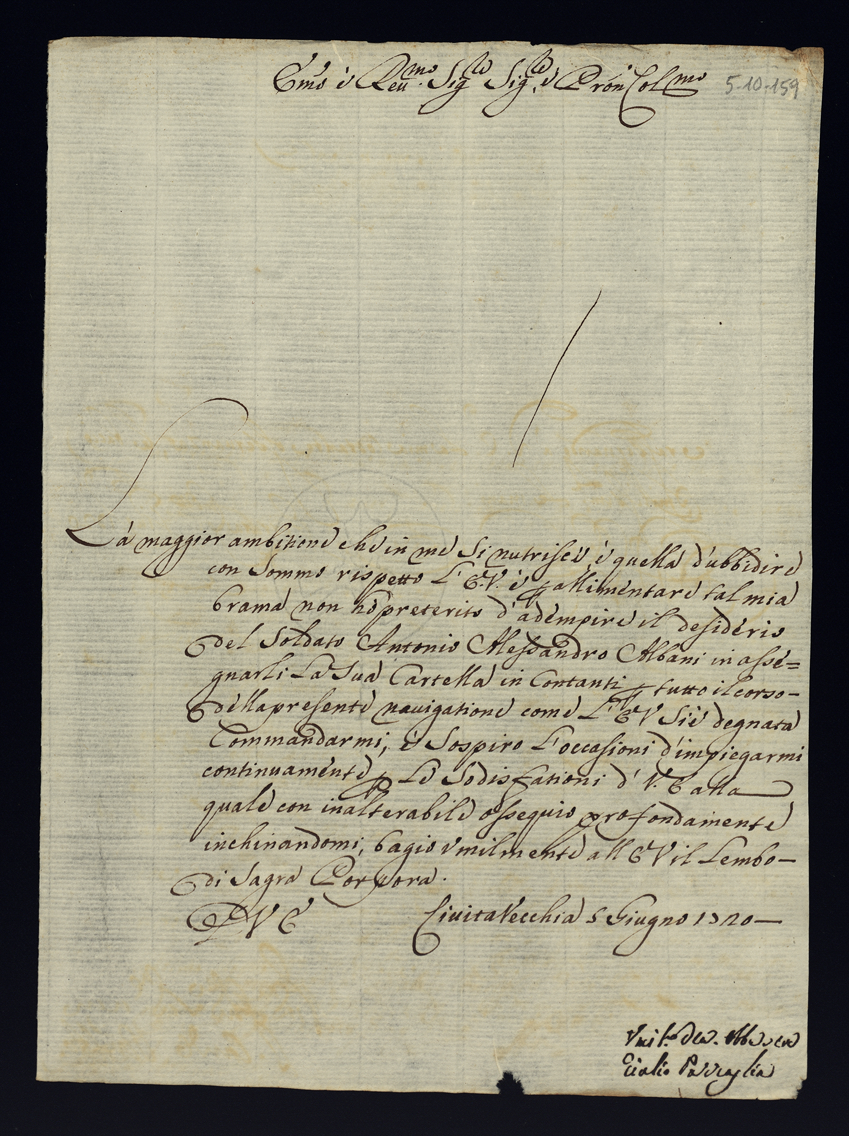 Em̃o è Reu.mo Sig.re Sig.re è Prõn Col.mo
5-10-159
La maggior ambitione che in me si nutrisce, è quella d'ubbidire
con sommo rispetto L'E.V. è p allimentare tal mia
brama non hò preterito d'adempire il desiderio
del Soldato Antonio Alessandro Albani in asse=
gnarli La Sua Cartella in Contanti p tutto il corso-
della presente nauigatione come L'E V Si è degnata
Commandarmi, è Sospiro L'occasioni d'impiegarmi
continuamente p Le Sodisfationi d' V. E alla
quale con inalterabile ossequio profondamente
inchinandomi, bagio vmilmente all E V il Lembo-
di Sagra Porpora.
D V E Ciuita Vecchia 5 Giugno 1720-
Vmil.o